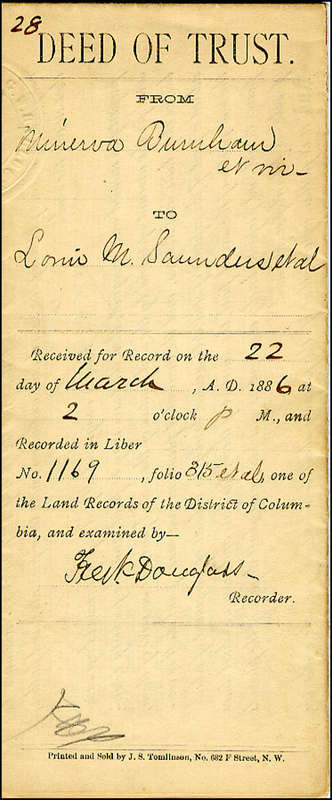 28
DEED OF TRUST.
FROM
Minerva Burnham
et vir
TO
M. Saunders et al
Received for Record on the 22
day of March, A. D. 1886, at
2 o'clock P M., and
Recorded in Liber
No. 1169, folio 315 et al, one of
the Land Records of the District of Colum-
bia, and examined by—
Fredk Douglass
Recorder.
Printed and Sold by J. S. Tomlinson, No. 632 F Street, N. W.